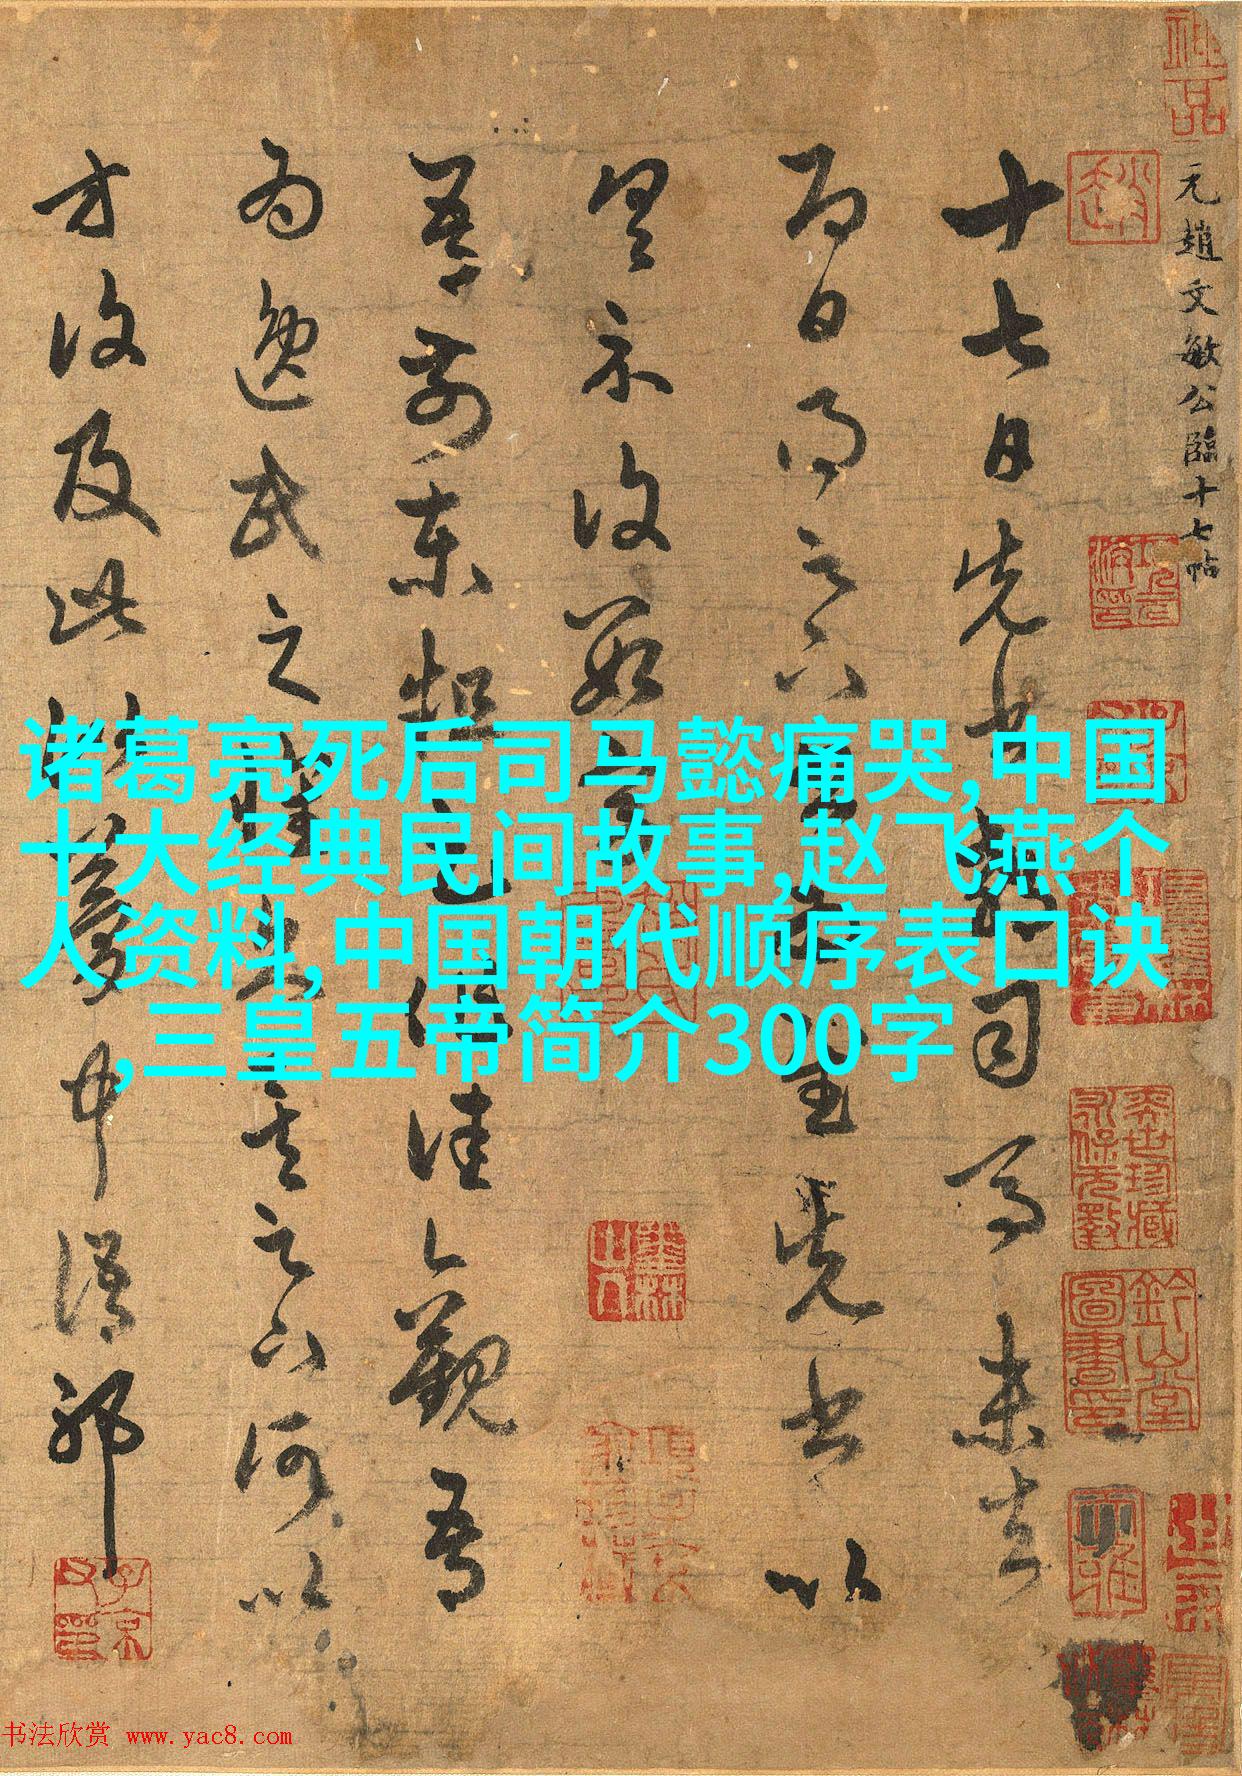 神品
元趙文敏公臨十七帖
十七日先書郗司馬未去
即日得足下書為慰先書以
具示復數字
吾前東粗足作佳觀吾
為逸民之懷久矣足下何以
方復及此似夢中語耶
诸葛亮死后司马懿痛哭,中国
十大经典民间故事,赵飞燕个
人资料,中国朝代顺序表口诀
,三皇五帝简介300字
鈐山堂圖書印
子京父印
书法欣赏 www.yac8.com